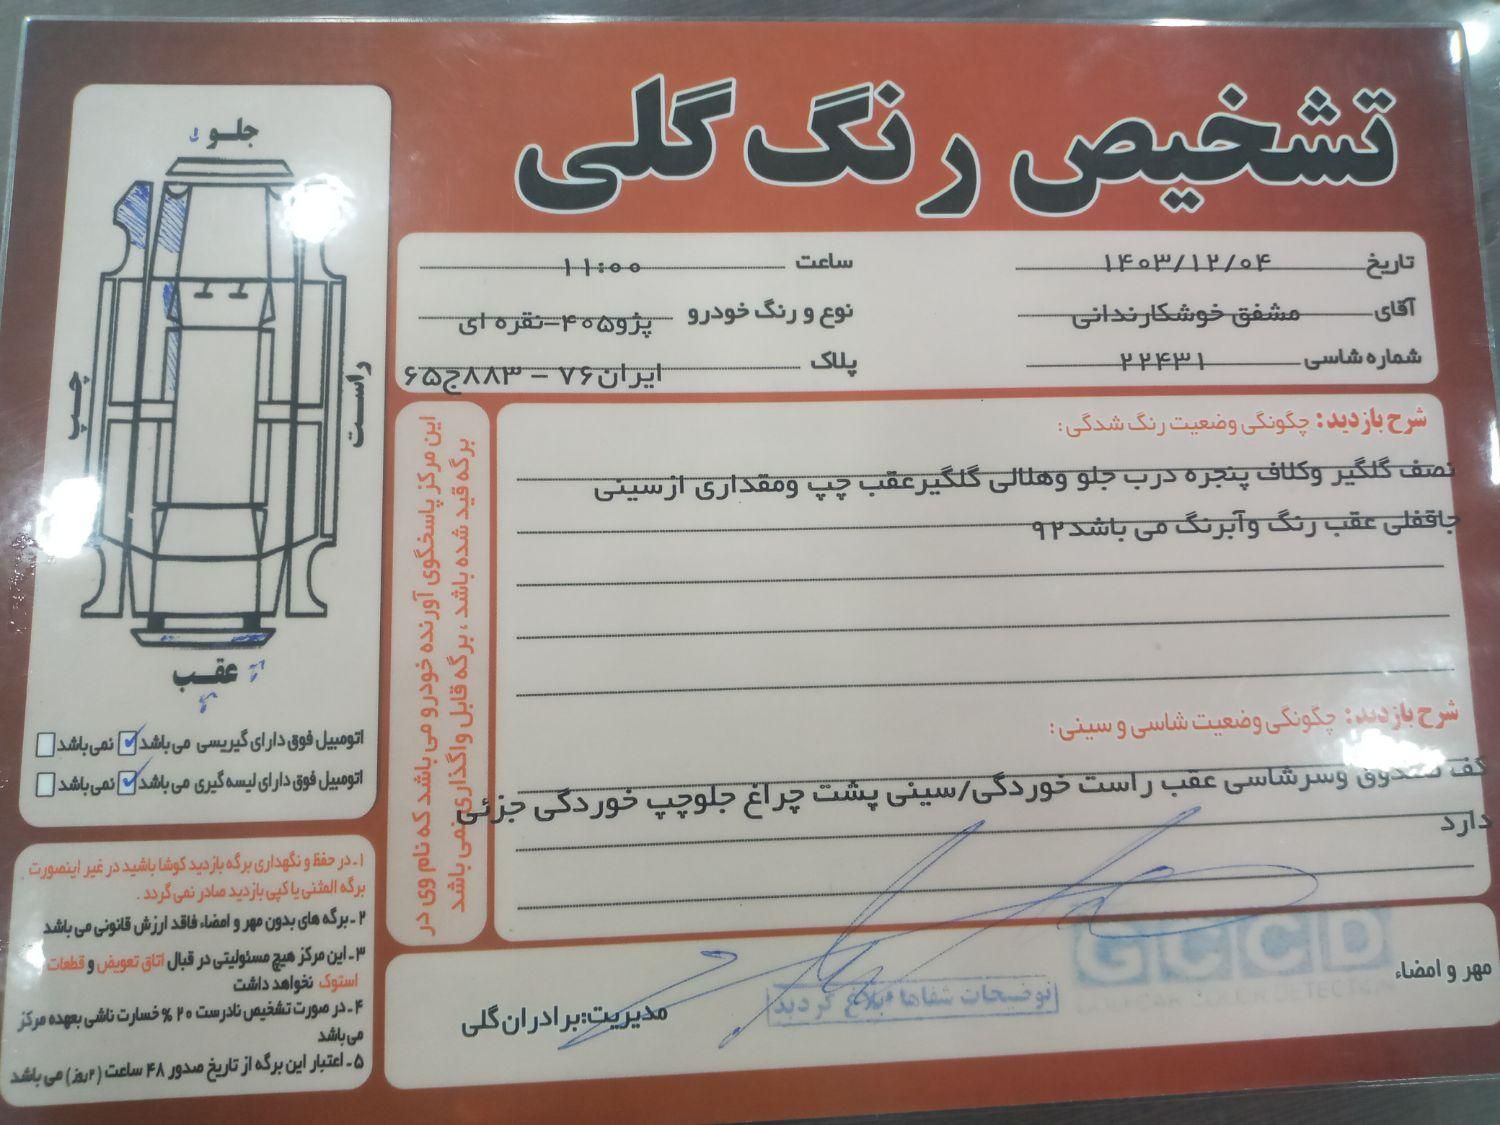 تشخیص رنگ گلی
تاریخ ۱۴۰۳/۱۲/۰۴
ساعت ۱۱:۰۰
آقای مشفق خوشکارندانی
نوع و رنگ خودرو پژو۴۰۵-نقره ای
شماره شاسی ۲۲۴۳۱
پلاک ایران۷۶ - ۸۸۳ج۶۵
شرح بازدید: چگونگی وضعیت رنگ شدگی:
نصف گلگیر وکلاف پنجره درب جلو وهلالی گلگیرعقب چپ ومقداری ازسینی
جاقفلی عقب رنگ وآبرنگ می باشد۹۲
شرح بازدید: چگونگی وضعیت شاسی و سینی:
کف صندوق وسرشاسی عقب راست خوردگی/سینی پشت چراغ جلوچپ خوردگی جزئی
دارد
مهر و امضاء
GCCD
توضیحات شفاها ابلاغ گردید
مدیریت:برادران گلی
این مرکز پاسخگوی آورنده خودرو می باشد که نام وی در
برگه قید شده باشد ، برگه قابل واگذاری نمی باشد
جلو
راست
چپ
عقب
اتومبیل فوق دارای گیریسی می باشد نمی باشد
اتومبیل فوق دارای لیسه گیری می باشد نمی باشد
۱ـ در حفظ و نگهداری برگه بازدید کوشا باشید در غیر اینصورت
برگه المثنی یا کپی بازدید صادر نمی گردد .
۲ـ برگه های بدون مهر و امضاء فاقد ارزش قانونی می باشد
۳ـ این مرکز هیچ مسئولیتی در قبال اتاق تعویض و قطعات
استوک نخواهد داشت
۴ـ در صورت تشخیص نادرست ۲۰ % خسارت ناشی بعهده مرکز
می باشد
۵ـ اعتبار این برگه از تاریخ صدور ۴۸ ساعت (۲روز) می باشد